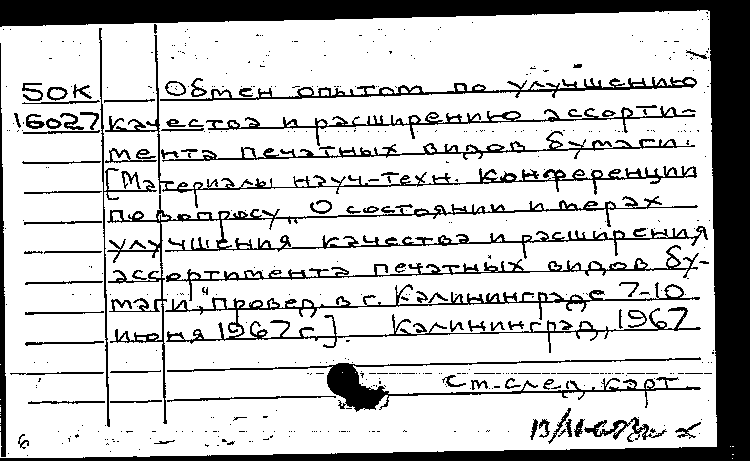 50К Обмен опытом по улучшению
16027 качества и расширению ассорти-
мента печатных видов бумаги.
[Материалы науч.-техн. конференции
по вопросу „О состоянии и мерах
улучшения качества и расширения
ассортимента печатных видов бу-
маги“, провед. в г. Калининграде 7-10
июня 1967 г.] Калининград, 1967
См. след. карт.
6